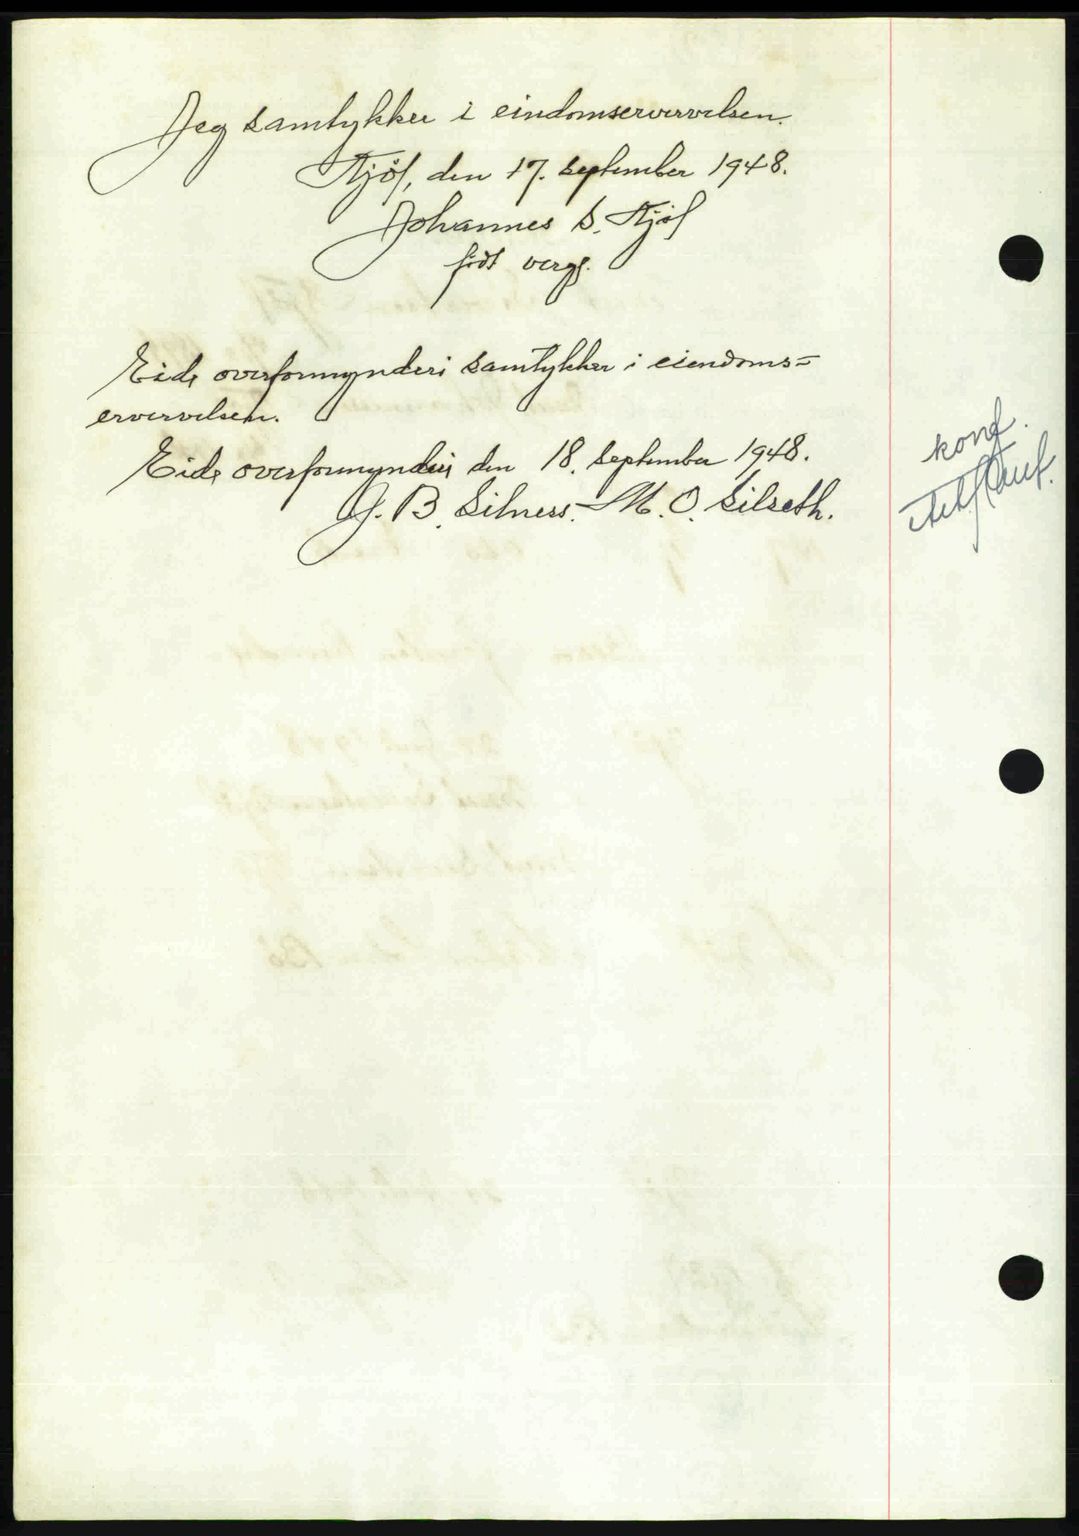 Jeg samtykker i eindomservervelsen.
Stjøl, den 17. september 1948.
Johannes S. Stjøl
født verge.
Eide overformynderi samtykker i eiendoms=
ervervelsen.
Eide overformynderi den 18. september 1948.
J. B. Silness. M. O. Silseth.
konf.